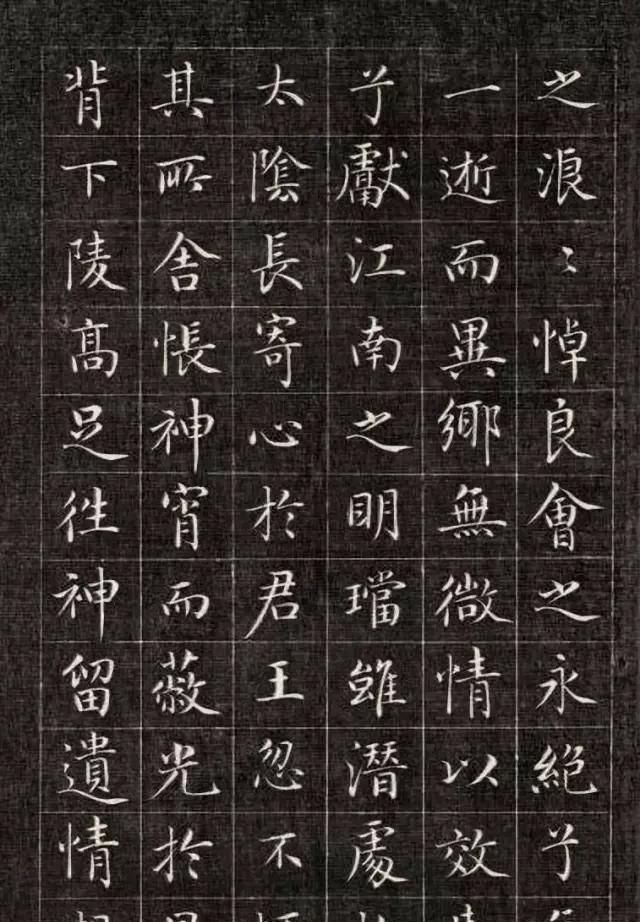 之浪〻悼良會之永絕兮
一逝而異鄉無微情以效
兮獻江南之明璫雖潛處
太陰長寄心於君王忽不
其所舍悵神宵而蔽光於
背下陵高足往神留遺情